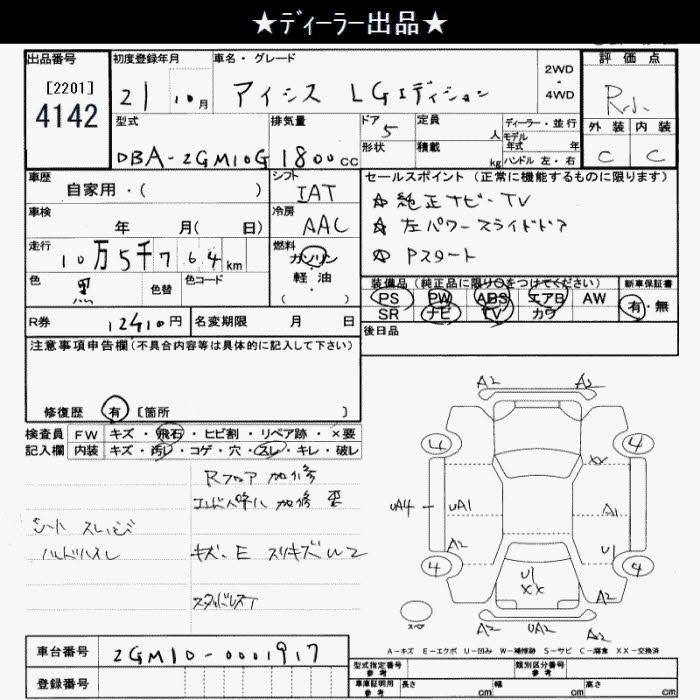 ★ディーラー出品★
出品番号 初度登録年月 車名・グレード 2WD・4WD 評価点
[2201]
4142 21 10月 アイシス LGエディション R.小
型式 排気量 ドア 5 定員 人 ディーラー・並行 外装 内装
モデル年式 年
形状 積載 kg ハンドル 左・右 C C
DBA-ZGM10G 1800cc
車歴 自家用・( ) シフト IAT セールスポイント(正常に機能するものに限ります)
☆純正ナビ・TV
車検 年 月( 日) 冷房 AAC ☆左パワースライドドア
走行 10万5千764km 燃料 ガソリン ☆Pスタート
色 黒 色替 色コード 軽・油 ( ) 装備品(純正品に限り○をつけてください) 新車保証書
PS PW ABS エアB AW 有・無
R券 12410円 名変期限 月 日 SR ナビ TV カワ
注意事項申告欄(不具合内容等は具体的に記入して下さい) 後日品
修復歴 有 [箇所 ]
検査員 FW キズ・飛石・ヒビ割・リペア跡・×要
記入欄 内装 キズ・汚レ・コゲ・穴・スレ・キレ・破レ
Rフロア 加修
加修 歪
シート スレ
キズ・E スリキズ W2
スタッドレスT
A2 A2
4 4
XX
UA4 UA1 A1
A2 U1
4 4
U1
XX
A2
スペア
A2 UA2 A2
A-キズ E-エクボ U-凹み W-補修跡 S-サビ C-腐食 XX-交換済
車台番号 ZGM10-0001917
登録番号
型式指定番号 参考 類別区分番号 参考
車庫証明用 参考 長さ cm 幅 cm 高さ cm